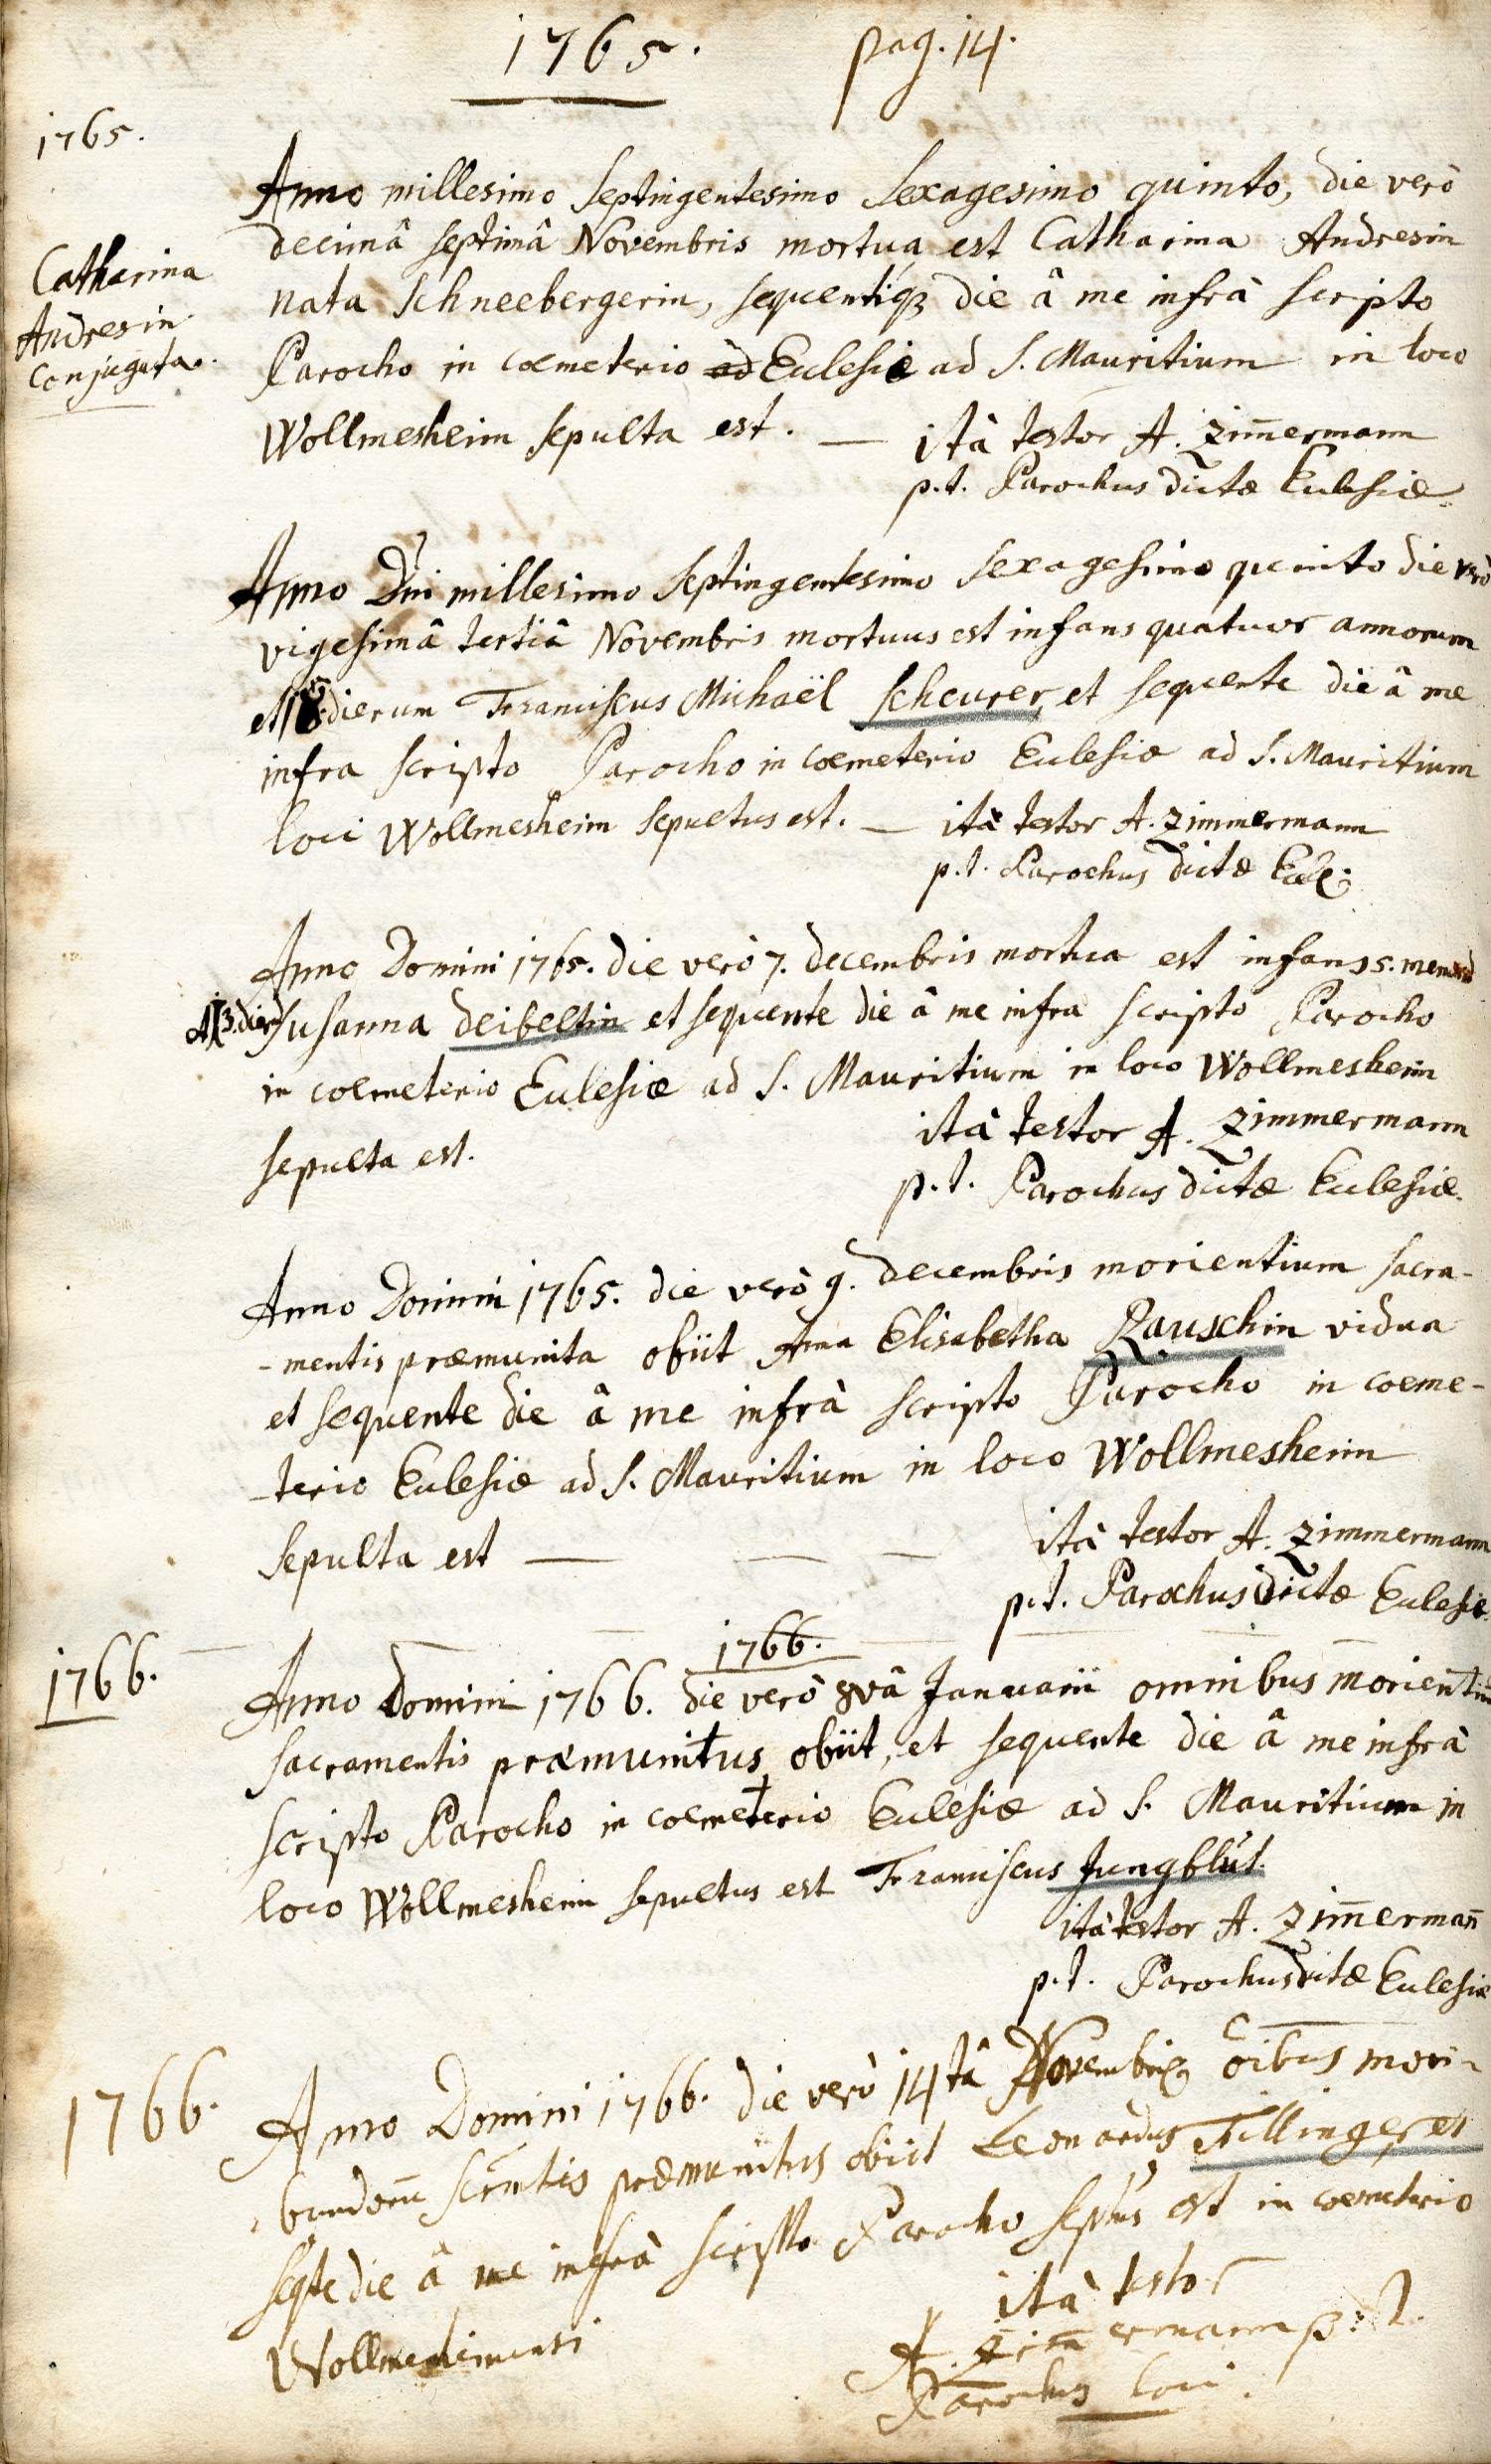 1765. pag. 14.
1765.
Anno millesimo septingentesimo sexagesimo quinto, die verò
decimâ septimâ Novembris mortua est Catharina Andresin
Catharina
Andresin
Conjugata.
nata Schneebergerin, sequentiq₃ die â me infrà scripto
Parocho in coemeterio ad Eclesiæ ad S. Mauritium in loco
Wollmesheim sepulta est. — ità testor A. Zim̄ermann
p.t. Parochus dictæ Eclesiæ.
Anno Dn̄i millesimo septingentesimo sexagesimo quinto die verò
vigesimâ tertiâ Novembris mortuus est infans quatuor annorum
et dierum Franciscus Michaël Scheurer, et sequente die â me
infra scripto Parocho in coemeterio Eclesiæ ad S. Mauritium
loci Wollmesheim sepultus est. — ità testor A. Zimmermann
p.t. Parochus dictæ Eccl:
Anno Domini 1765. die verò 7. decembris mortua est infans 5. mensiū
et 3. dierū Susanna Deibeltin et sequente die â me infra scripto Parocho
in coemeterio Eclesiæ ad S. Mauritium in loco Wollmesheim
sepulta est.
ità testor A. Zimmermann
p.t. Parochus dictæ Eclesiæ.
Anno Domini 1765. die verò 9. decembris morientium sacra-
-mentis præmunita obiit Anna Elisabetha Rauschin vidua
et sequente die â me infrà scripto Parocho in coeme-
-terio Eclesiæ ad S. Mauritium in loco Wollmesheim
sepulta est — — — ità testor A. Zimmermann
p.t. Parochus dictæ Eclesiæ.
1766.
1766.
Anno Domini 1766. die verò 8vâ Januarii omnibus morientiū
sacramentis præmunitus obiit, et sequente die â me infrà
scripto Parocho in coemeterio Eclesiæ ad S. Mauritium in
loco Wollmesheim sepultus est Franciscus Jungblut.
ità testor A. Zim̄erman̄
p.t. Parochus dictæ Eclesiæ
1766.
Anno Domini 1766. die verò 14tâ Novembris oībus mori-
bundorū scrm̄tis præmunitus obiit Leonardus Fillinger et
seqte die â me infrà scripto Parocho sepltus est in coemeterio
Wollmesheimensi
ità testor
A. Zim̄ermann p.t.
Parochus loci.